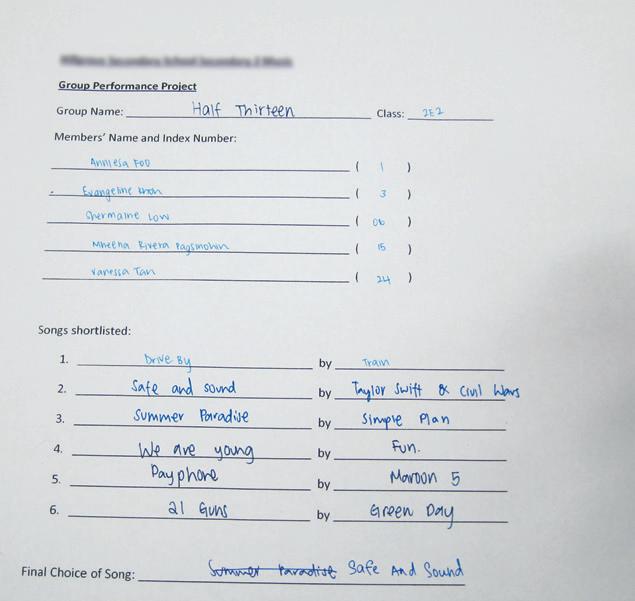 Group Performance Project
Group Name: Half Thirteen Class: 2E2
Members' Name and Index Number:
Anniesa Foo ( 1 )
Evangeline Khon ( 3 )
Shermaine Low ( 06 )
Mheena Rivera Pagsmohin ( 15 )
Vanessa Tan ( 24 )
Songs shortlisted:
1. Drive By by Train
2. Safe and sound by Taylor Swift & Civil Wars
3. Summer Paradise by Simple Plan
4. We are young by Fun.
5. Payphone by Maroon 5
6. 21 Guns by Green Day
Final Choice of Song: Summer Paradise Safe And Sound